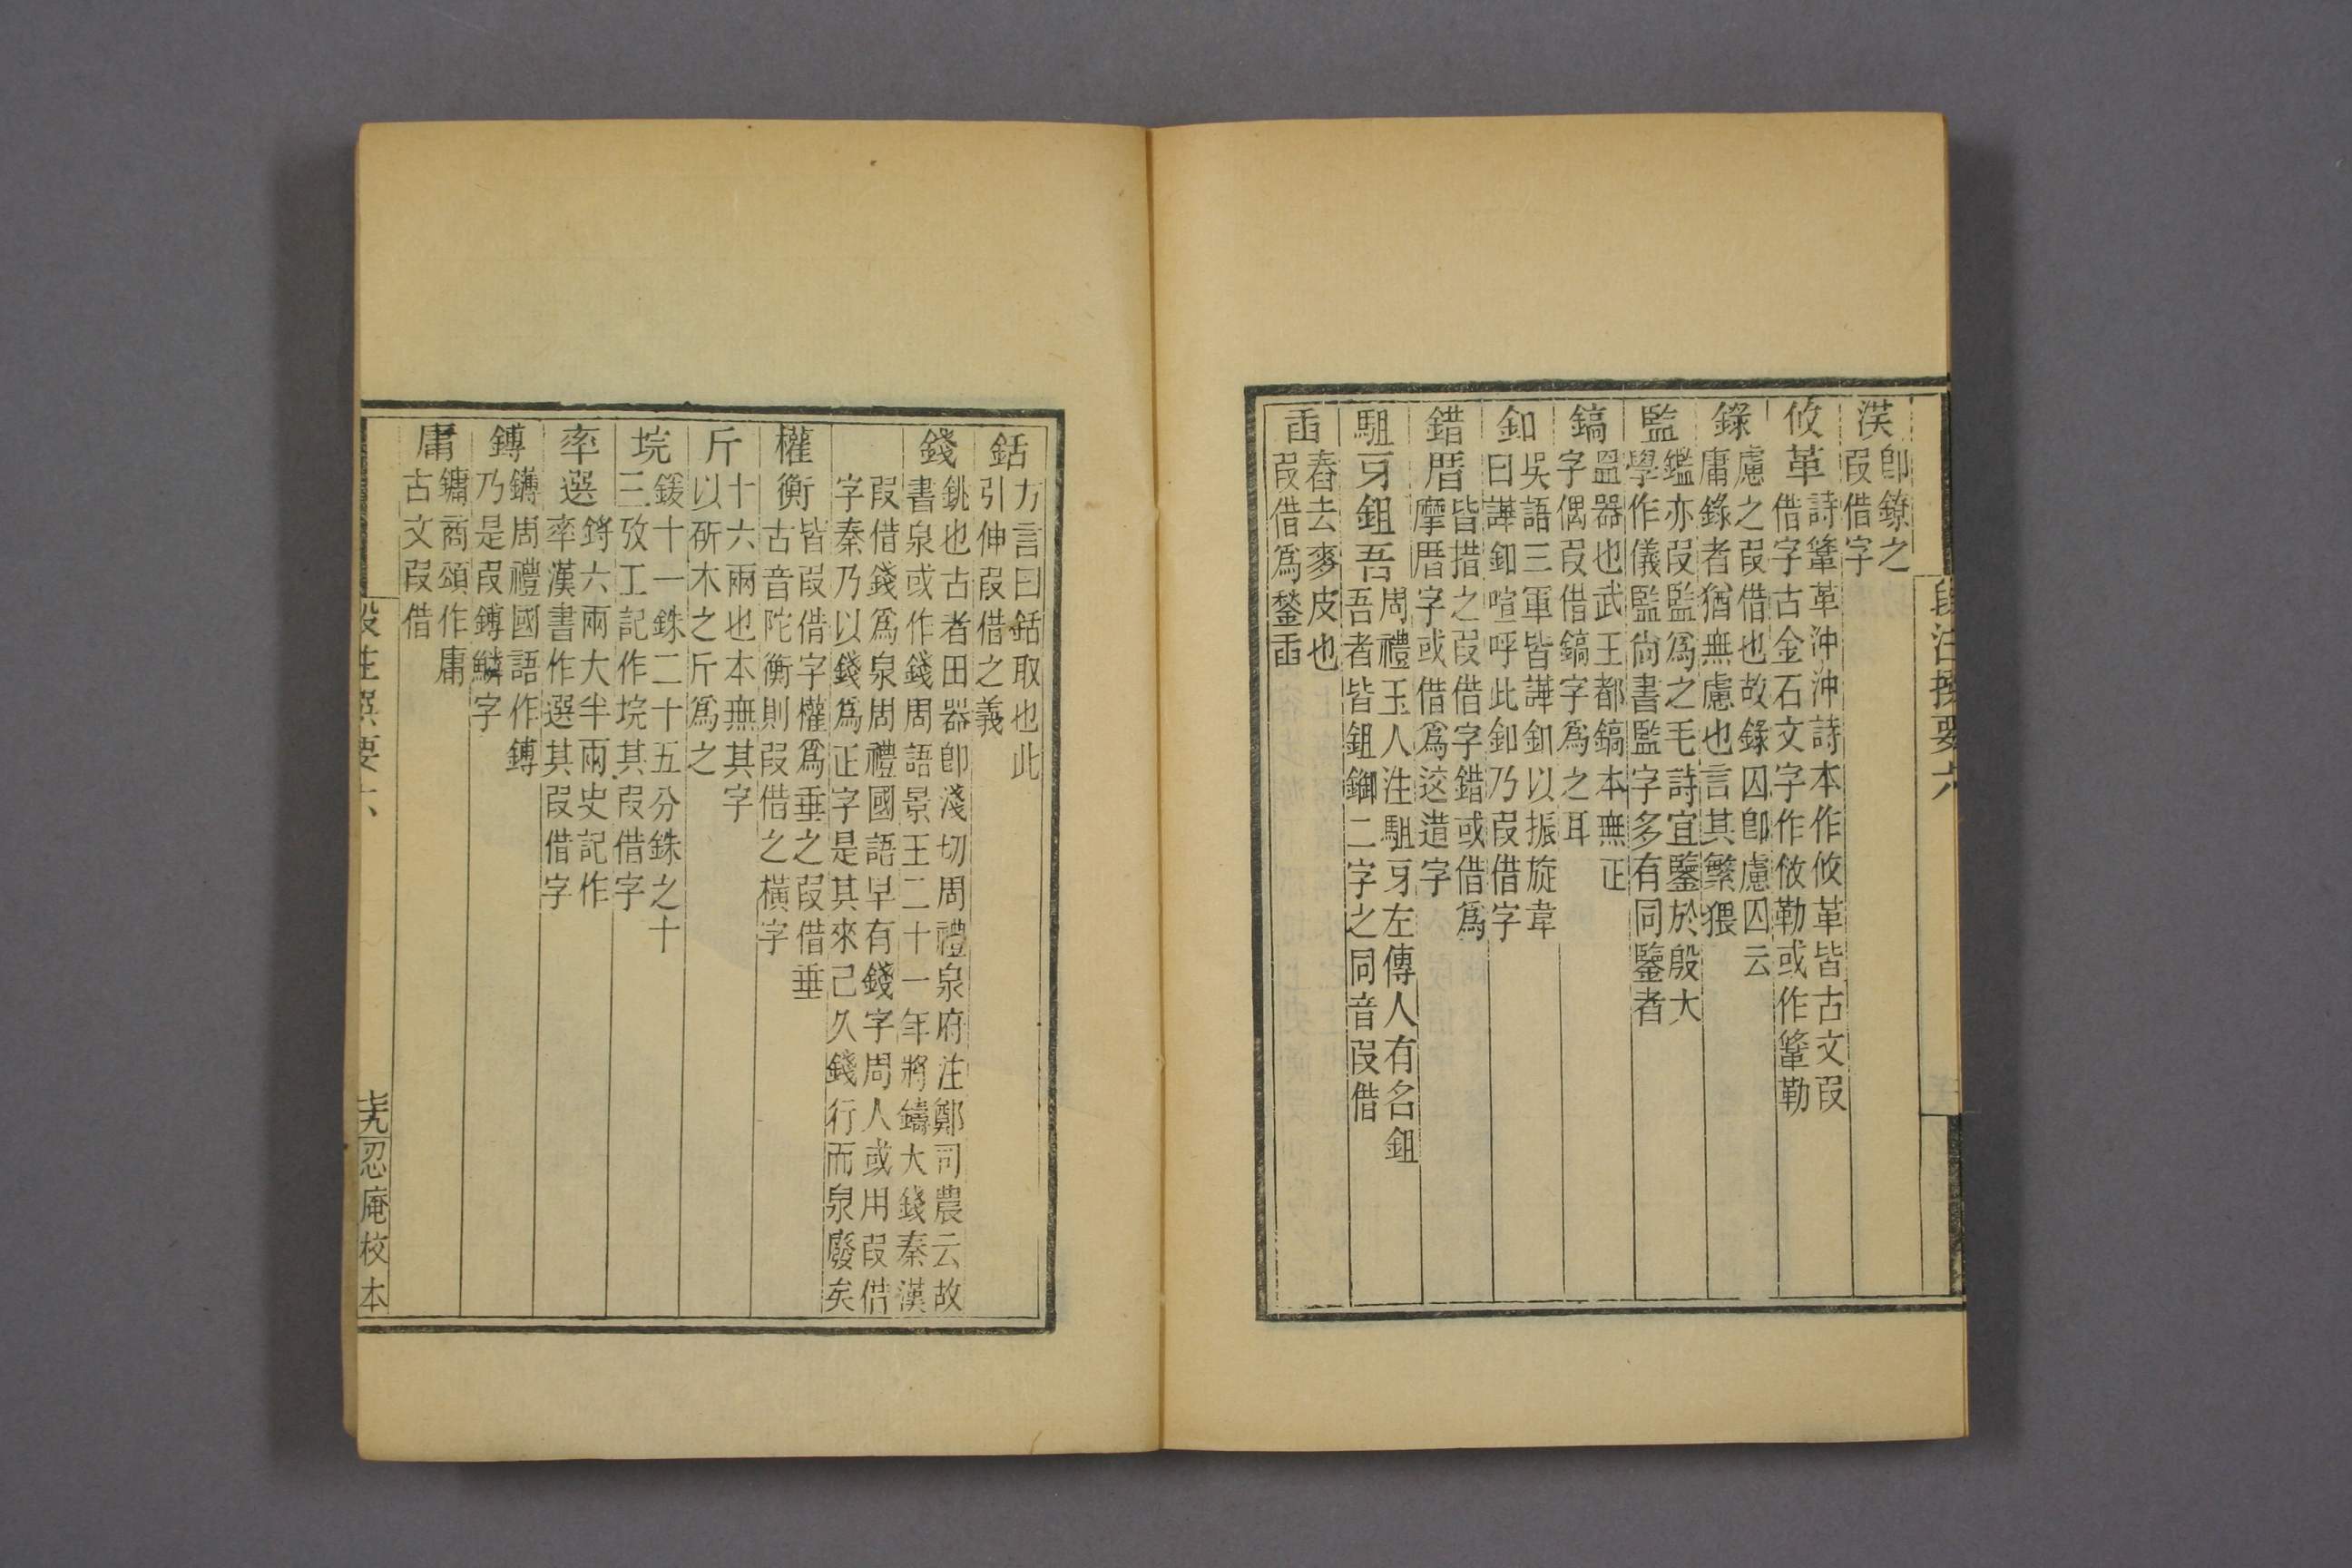 段注撰要六
即鐐之
叚借字
攸革
詩鞗革沖沖詩本作攸革皆古文叚
借字古金石文字作攸勒或作鞗勒
錄
慮之叚借也故錄囚卽慮囚云
庸錄者猶無慮也言其繁猥
監
鑑亦叚監爲之毛詩宜鑒於殷大
學作儀監尙書監字多有同鑒者
鎬
𥁕器也武王都鎬本無正
字偶叚借鎬字爲之耳
釦
吳語三軍皆譁釦以振旅韋
曰譁釦喧呼此釦乃叚借字
錯厝
皆措之叚借字錯或借爲
摩厝字或借爲迻造字
駔牙鉏吾
周禮玉人注駔牙左傳人有名鉏
吾者皆鉏鋤二字之同音叚借
臿
舂去麥皮也
叚借爲鍫臿
銛
方言曰銛取也此
引伸叚借之義
錢
銚也古者田器卽淺切周禮泉府注鄭司農云故
書泉或作錢周語景王二十一年將鑄大錢秦漢
叚借錢爲泉周禮國語早有錢字周人或用叚借
字秦乃以錢爲正字是其來已久錢行而泉廢矣
權衡
皆叚借字權爲垂之叚借垂
古音陀衡則叚借之橫字
斤
十六兩也本無其字
以斫木之斤爲之
垸
鍰十一銖二十五分銖之十
三攷工記作垸其叚借字
率選
鋝六兩大半兩史記作
率漢書作選其叚借字
鎛
鑮周禮國語作鎛
乃是叚鎛鱗字
庸
鏞商頌作庸
古文叚借
段注撰要六
忍庵校本